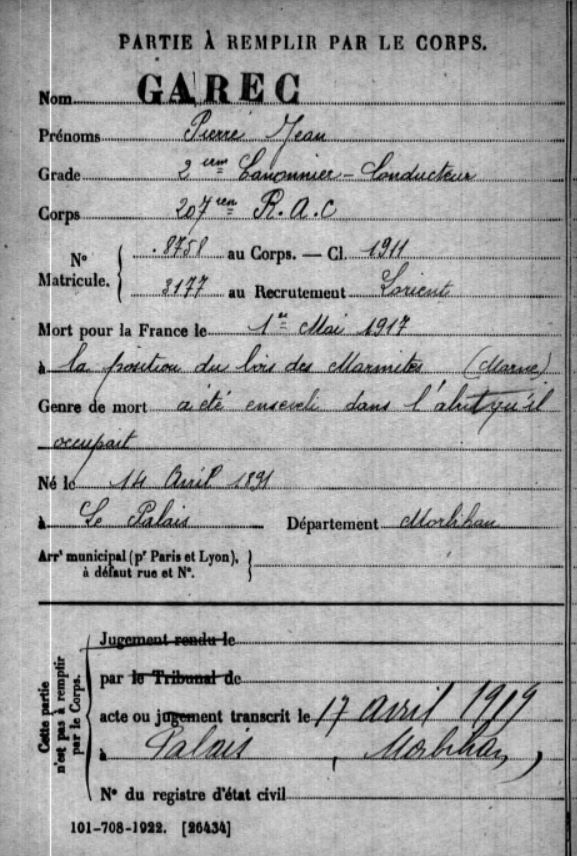 PARTIE À REMPLIR PAR LE CORPS.
Nom GAREC
Prénoms Pierre Jean
Grade 2ème Canonnier - Conducteur
Corps 207ème R.A.C
N° Matricule. 8758 au Corps. — Cl. 1911
3177 au Recrutement Lorient
Mort pour la France le 1er Mai 1917
à la position du bois des Marmites (Marne)
Genre de mort a été enseveli dans l'abri qu'il
occupait
Né le 14 Avril 1891
à Le Palais Département Morbihan
Arrt municipal (pr Paris et Lyon),
à défaut rue et N°.
Cette partie n'est pas à remplir par le Corps.
Jugement rendu le
par le Tribunal de
acte ou jugement transcrit le 17 avril 1919
à Palais, Morbihan,
N° du registre d'état civil
101-708-1922. [26434]